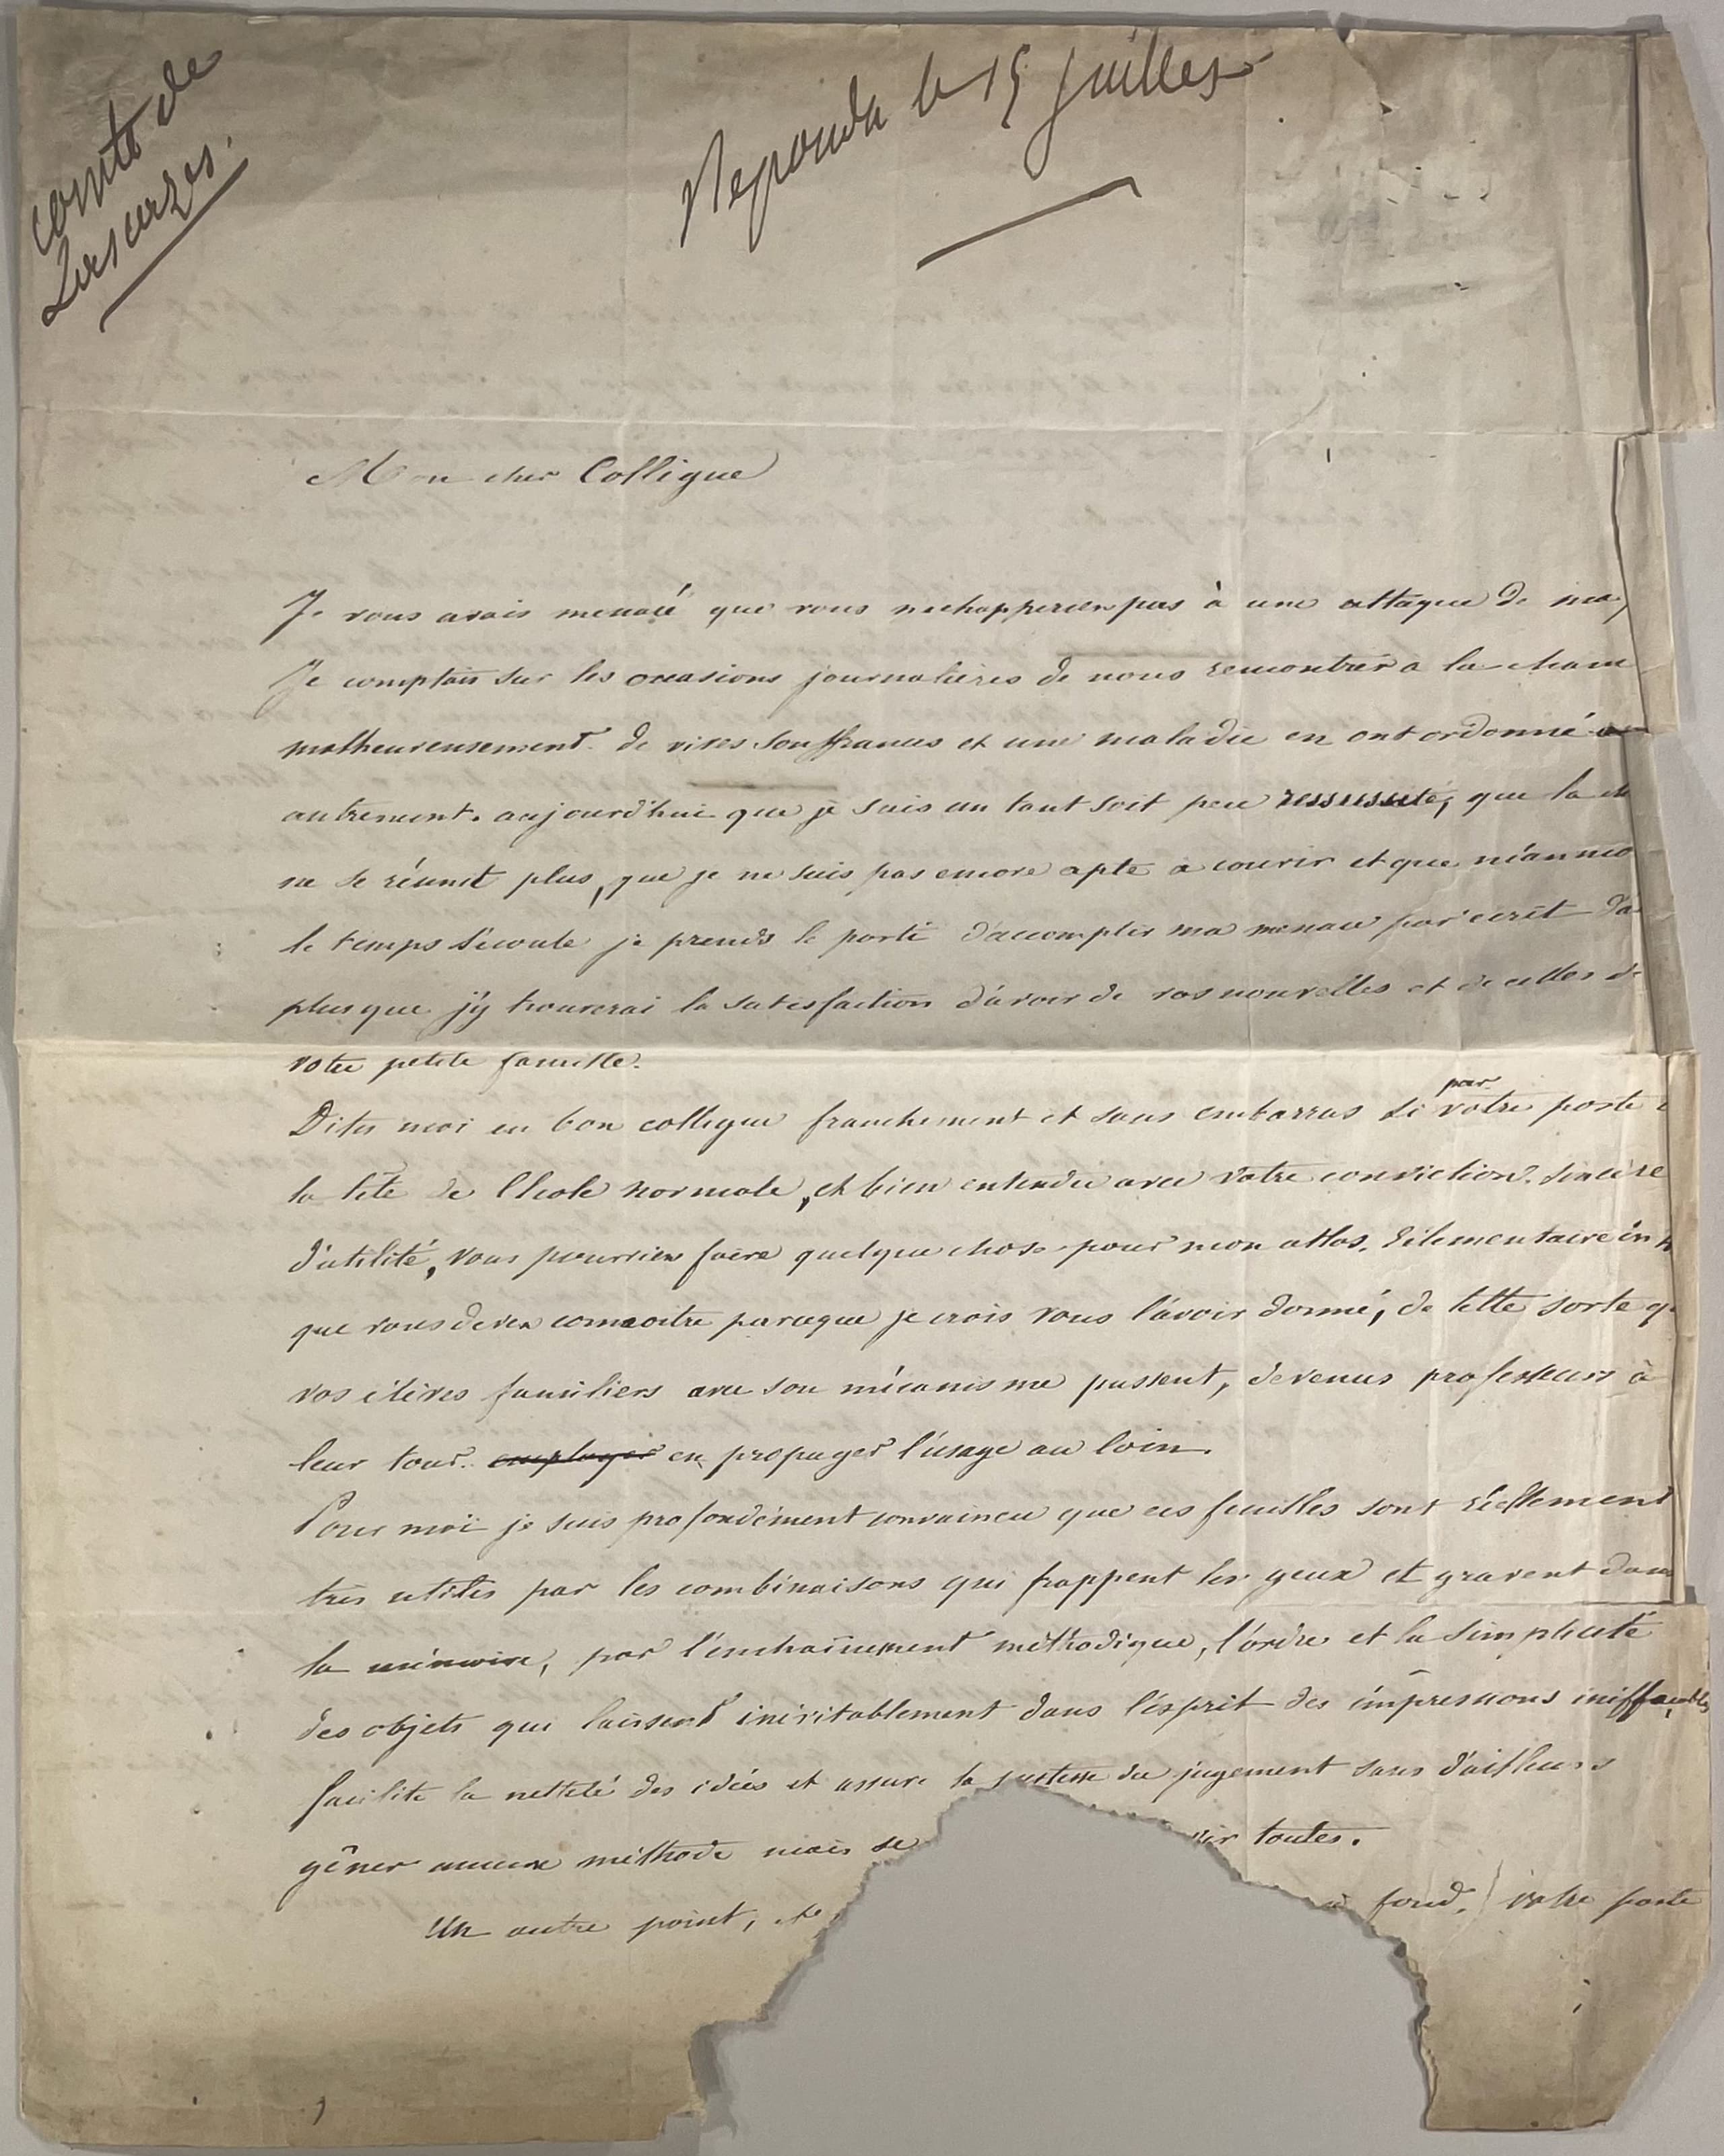 comte de
Lascazes.
Repondu le 15 Juillet
Mon cher Collègue
Je vous avais menacé que vous n'echapperiez pas à une attaque de ma
Je comptais sur les occasions journalières de nous rencontrer a la cham
malheureusement de vives souffrances et une maladie en ont ordonné
autrement. aujourd'hui que je suis un tant soit peu ressuscité, que la ch
ne se réunit plus, que je ne suis pas encore apte a courir et que néanmo
le temps s'écoule je prends le parti d'accomplir ma menace par écrit d'a
plus que j'y trouverai la satisfaction d'avoir de vos nouvelles et de celles de
votre petite famille.
Dites moi en bon collègue franchement et sans embarras si par votre poste
la tête de l'école normale, et bien entendu avec votre conviction sincère
d'utilité, vous pourriez faire quelque chose pour mon atlas. élémentaire in
que vous devez connaitre parceque je crois vous l'avoir donné, de telle sorte q
vos élèves familiers avec son mécanisme pussent, devenus professeurs à
leur tour employer en propager l'usage au loin.
Pour moi je suis profondément convaincu que ces feuilles sont réellement
très utiles par les combinaisons qui frappent les yeux et gravent dans
la mémoire, par l'enchaînement méthodique, l'ordre et la simplicité
des objets qui laissent inévitablement dans l'esprit des impressions ineffaçables
facilite la netteté des idées et assure la justesse du jugement sans d'ailleurs
gêner aucune méthode mais se toutes.
Un autre point, fond. votre poste